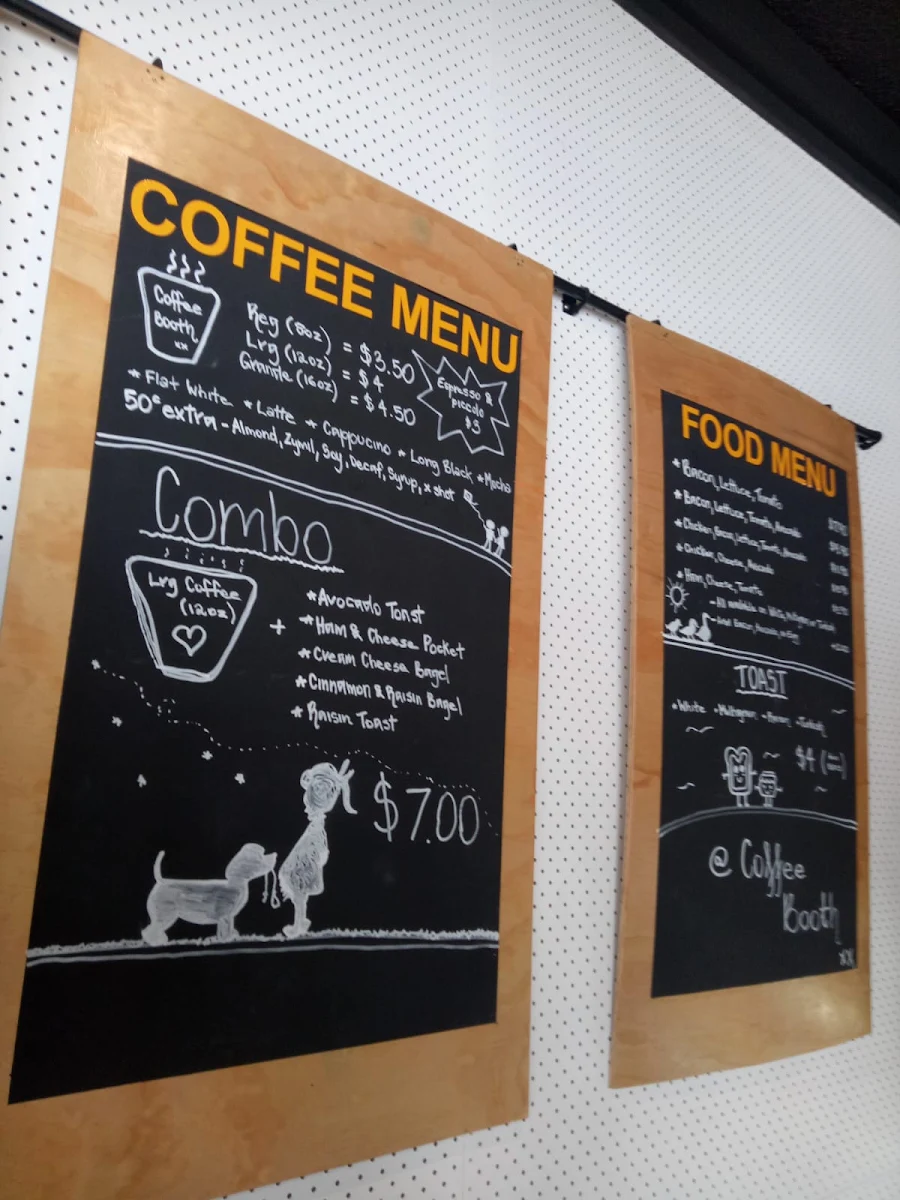 COFFEE MENU
Coffee
Booth
xx
Reg (8oz) = $3.50
Lrg (12oz) = $4
Grande (16oz) = $4.50
Espresso &
piccolo
$3
* Flat White * Latte * Cappucino * Long Black * Mocha
50c extra - Almond, Zymil, Soy, Decaf, Syrup, x shot
Combo
Lrg Coffee
(12oz)
+
* Avocado Toast
* Ham & Cheese Pocket
* Cream Cheese Bagel
* Cinnamon & Raisin Bagel
* Raisin Toast
$7.00
FOOD MENU
* Bacon, Lettuce, Tomato
* Bacon, Lettuce, Tomato, Avocado
* Chicken, Bacon, Lettuce, Tomato, Avocado
* Chicken, Cheese, Avocado
* Ham, Cheese, Tomato
- All available on White, Multigrain or Turkish
- Add Bacon, Avocado or Egg
TOAST
* White * Multigrain * Raisin * Turkish
$4
@ Coffee
Booth
xx